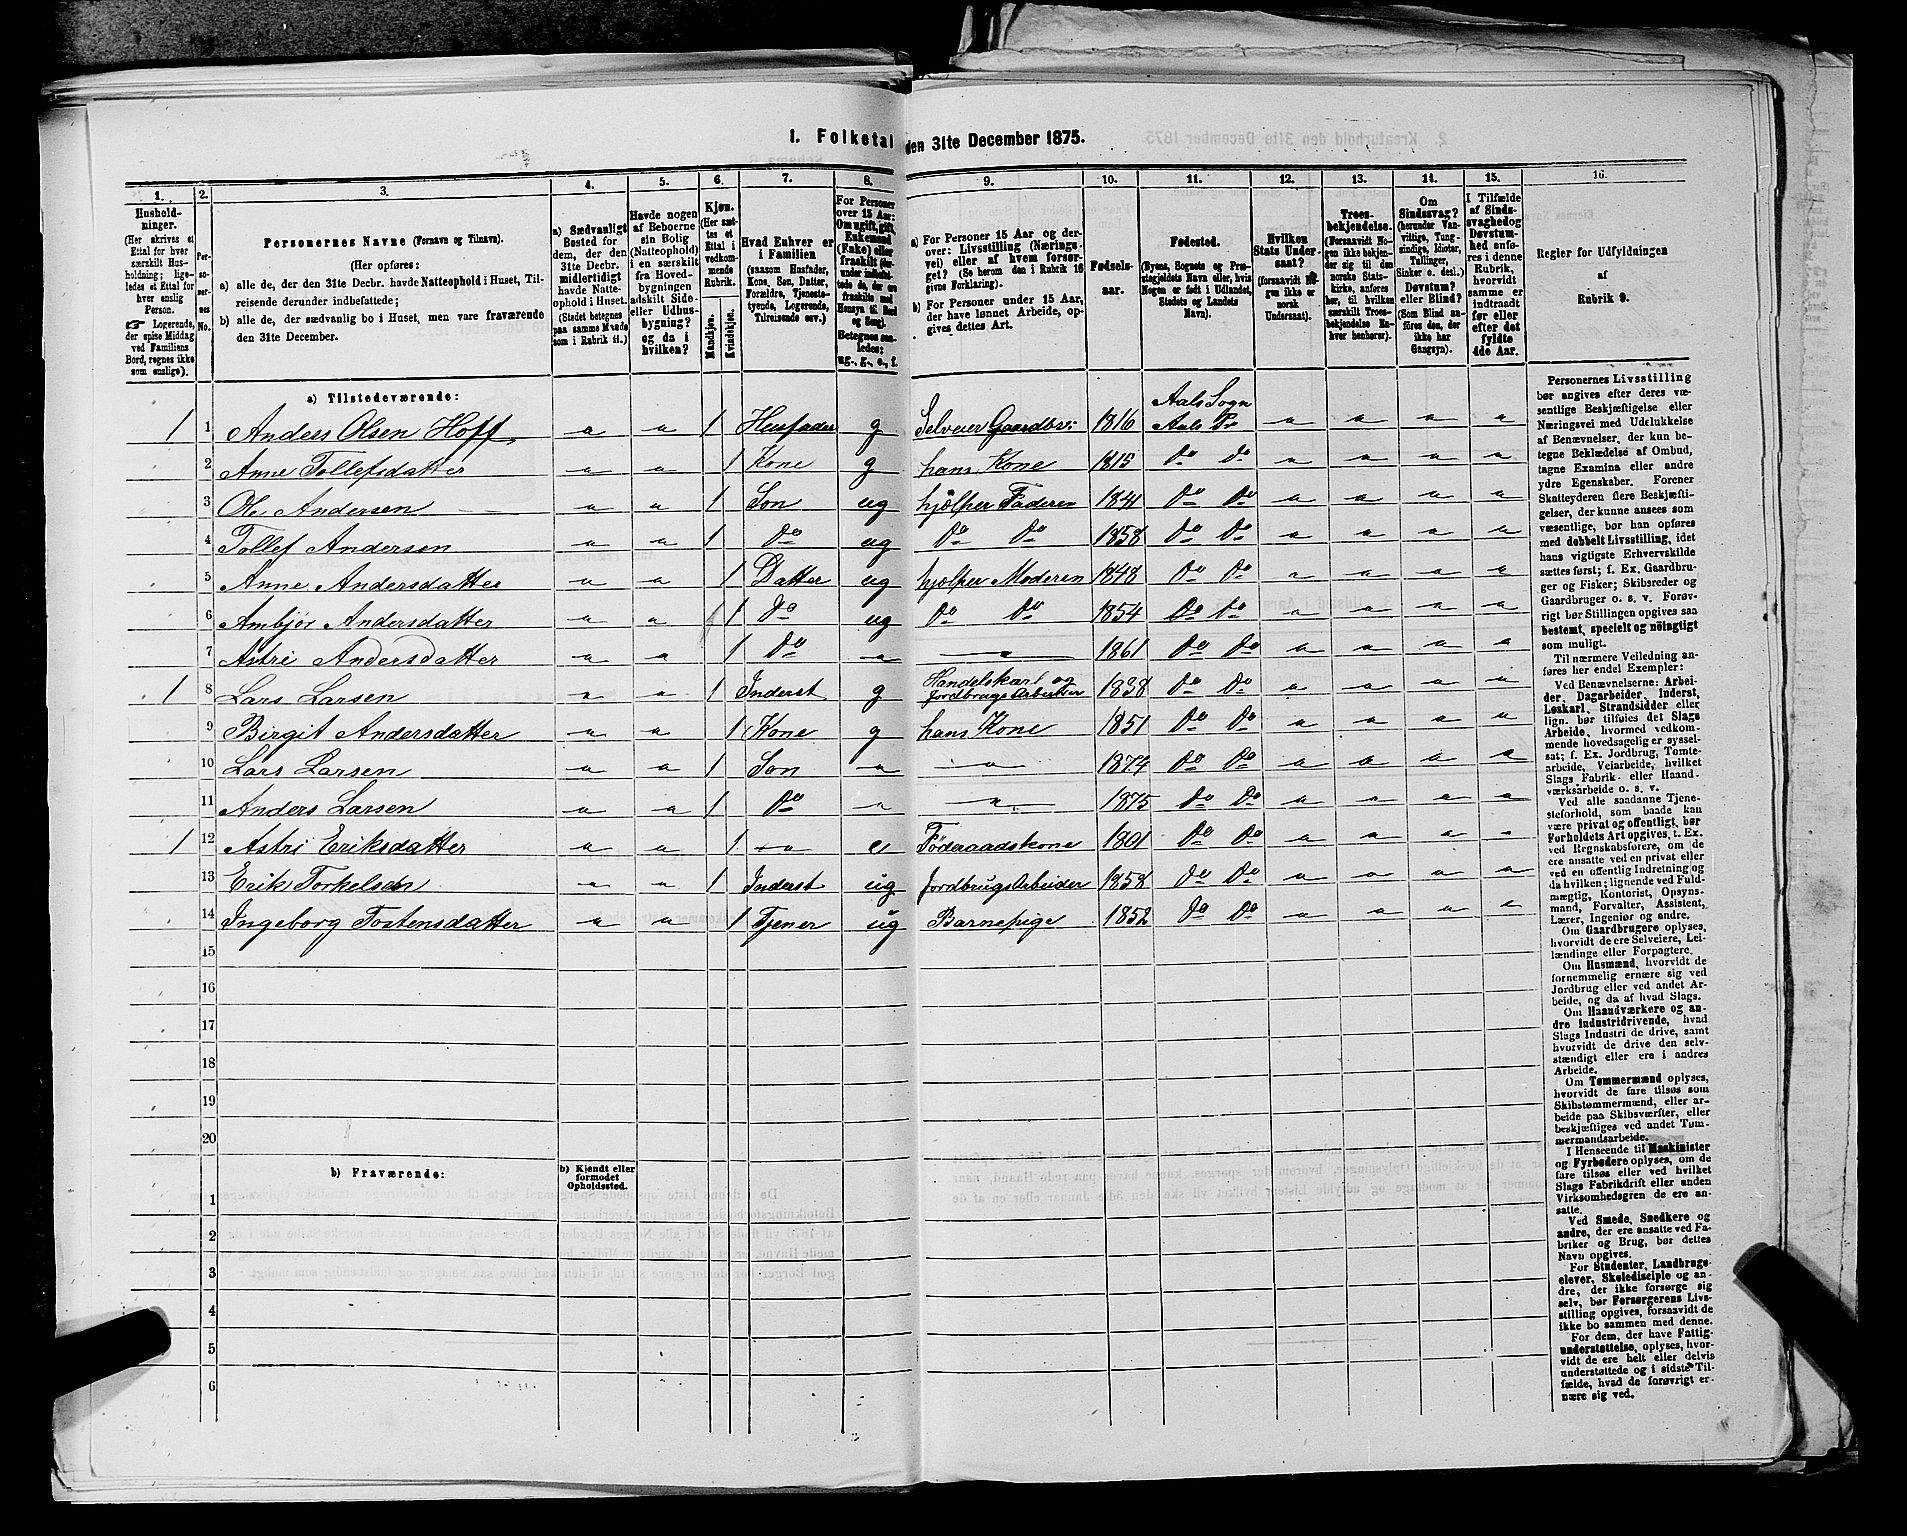 1. Folketal den 31te December 1875.
1. 2. 3. 4. 5. 6. 7. 8. 9. 10. 11. 12. 13. 14. 15. 16.
Hushold-
ninger.
(Her skrives et
Ettal for hver
særskilt Hus-
holdning; lige-
ledes et Ettal for
hver enslig
Person.
☞ Logerende,
der spise Middag
ved Familiens
Bord, regnes ikke
som enslige).
Per-
so-
ner-
nes
No.
Personernes Navne (Fornavn og Tilnavn).
(Her opføres:
a) alle de, der den 31te Decbr. havde Natteophold i Huset, Til-
reisende derunder indbefattede;
b) alle de, der sædvanlig bo i Huset, men vare fraværende
den 31te December.
a) Sædvanligt
Bosted for
dem, der den
31te Decbr.
midlertidigt
havde Natte-
ophold i Huset.
(Stedet betegnes
paa samme Maade
som i Rubrik 11.)
Havde nogen
af Beboerne
sin Bolig
(Natteophold)
i en særskilt
fra Hoved-
bygningen
adskilt Side-
eller Udhus-
bygning?
og da i
hvilken?
Kjøn.
(Her sæt-
tes et
Ettal i
vedkom-
mende
Rubrik.
Mandkjøn.
Kvindekjøn.
Hvad Enhver er
i Familien
(saasom Husfader,
Kone, Søn, Datter,
Forældre, Tjeneste-
tyende, Logerende,
Tilreisende osv.)
For Personer
over 15 Aar:
Om ugift, gift,
Enkemand
(Enke) eller
fraskilt
Betegnes saa-
ledes:
ug., g., e., f.
a) For Personer 15 Aar og der-
over: Livsstilling (Nærings-
vei) eller af hvem forsør-
get? (Se herom den i Rubrik 16
givne Forklaring).
b) For Personer under 15 Aar,
der have lønnet Arbeide, op-
gives dettes Art.
Fødsels-
aar.
Fødested.
(Byens, Sognets og Præ-
stegjeldets Navn eller, hvis
Nogen er født i Udlandet,
Stedets og Landets
Navn).
Hvilken
Stats Under-
saat?
(forsaavidt No-
gen ikke er
norsk
Undersaat).
Troes-
bekjendelse.
(Forsaavidt No-
gen ikke bekjen-
der sig til den
norske Stats-
kirke, anføres
her, til hvilken
særskilt Troes-
bekjendelse En-
hver henhører).
Om
Sindssvag?
(herunder Van-
vittige, Tung-
sindige, Idioter,
Tullinger,
Sinker o. desl.)
Døvstum?
eller Blind?
(Som Blind an-
føres den, der
ikke har
Gangsyn).
I Tilfælde
af Sinds-
svaghed og
Døvstum-
hed anfø-
res i denne
Rubrik,
hvorvidt
samme er
indtraadt
før eller
efter det
fyldte
4de Aar.
Regler for Udfyldningen
af
Rubrik 9.
a) Tilstedeværende:
Aals Sogn
1 1 Anders Olsen Hoff " " 1 Husfader g Selveier Gaardbr: 1816 Aals P " " " "
2 Anne Tollefsdatter " " 1 Kone g hans Kone 1815 do do " " " "
3 Ole Andersen " " 1 Søn ug hjælper Faderen 1841 do do " " " "
4 Tollef Andersen " " 1 Do ug Do Do 1858 do do " " " "
5 Anne Andersdatter " " 1 Datter ug hjælper Moderen 1848 do do " " " "
6 Ambjør Andersdatter " " 1 Do ug Do Do 1854 do do " " " "
7 Astri Andersdatter " " 1 Do " " 1861 do do " " " "
1 8 Lars Larsen " " 1 Inderst g Handelskarl og Jordbrugs Arbeider 1838 do do " " " "
9 Birgit Andersdatter " " 1 Kone g hans Kone 1851 do do " " " "
10 Lars Larsen " " 1 Søn " " 1874 do do " " " "
11 Anders Larsen " " 1 Do " " 1875 do do " " " "
1 12 Astri Eriksdatter " " 1 " e Føderaadskone 1801 do do " " " "
13 Erik Torkelsen " " 1 Inderst ug Jordbrugs Arbeider 1858 do do " " " "
14 Ingeborg Tostensdatter " " 1 Tjener ug Barnepige 1852 do do " " " "
15
16
17
18
19
20
b) Fraværende:
b) Kjendt eller
formodet
Opholdssted.
1
2
3
4
5
6
Personernes Livsstilling
bør angives efter deres væ-
sentlige Beskjæftigelse eller
Næringsvei med Udelukkelse
af Benævnelser, der kun be-
tegne Beklædelse af Ombud,
tagne Examina eller andre
ydre Egenskaber. Forener
Skatteyderen flere Beskjæfti-
gelser, der kunne ansees som
væsentlige, bør han opføres
med dobbelt Livsstilling, idet
hans vigtigste Erhvervskilde
sættes først; f. Ex. Gaardbru-
ger og Fisker; Skibsreder og
Gaardbruger o. s. v. Forøv-
rigt bør Stillingen opgives saa
bestemt, specielt og nöiagtigt
som muligt.
Til nærmere Veiledning an-
føres her endel Exempler:
Ved Benævnelserne: Arbei-
der, Dagarbeider, Inderst,
Løskarl, Strandsidder eller
lign. bør tilføies det Slags
Arbeide, hvormed vedkom-
mende hovedsagelig er syssel-
sat; f. Ex. Jordbrug, Tomte-
arbeide, Veiarbeide, hvilket
Slags Fabrik- eller Haand-
værksarbeide o. s. v.
Ved alle saadanne Tjene-
steforhold, som baade kan
være privat og offentligt, bør
Forholdets Art opgives, t. Ex.
ved Regnskabsførere, om de
ere ansatte ved en privat eller
ved en offentlig Indretning og
da hvilken; lignende ved Fuld-
mægtig, Kontorist, Opsyns-
mand, Forvalter, Assistent,
Lærer, Ingeniør og andre.
Om Gaardbrugere oplyses,
hvorvidt de ere Selveiere, Lei-
lændinge eller Forpagtere.
Om Husmænd, hvorvidt de
fornemmelig ernære sig ved
Jordbrug eller ved andet Ar-
beide, og da af hvad Slags.
Om Haandværkere og an-
dre Industridrivende, hvad
Slags Industri de drive, samt
hvorvidt de drive den selv-
stændigt eller ere i andres
Arbeide.
Om Tømmermænd oplyses,
hvorvidt de fare tilsøs som
Skibstømmermænd, eller ar-
beide paa Skibsværfter, eller
beskjæftiges ved andet Tøm-
mermandsarbeide.
I Henseende til Maskinister
og Fyrbødere oplyses, om de
fare tilsøs eller ved hvilket
Slags Fabrikdrift eller anden
Virksomhedsgren de ere an-
satte.
Ved Smede, Snedkere og
andre, der ere ansatte ved Fa-
briker og Brug, bør dettes
Navn opgives.
For Studenter, Landbrugs-
elever, Skoledisciple og an-
dre, der ikke forsørge sig
selv, bør Forsørgerens Livs-
stilling opgives, forsaavidt de
ikke bo sammen med denne.
For dem, der have Fattig-
understøttelse, oplyses, hvor-
vidt de ere helt eller delvis
understøttede og i sidste Til-
fælde, hvad de forøvrigt er-
nære sig ved.